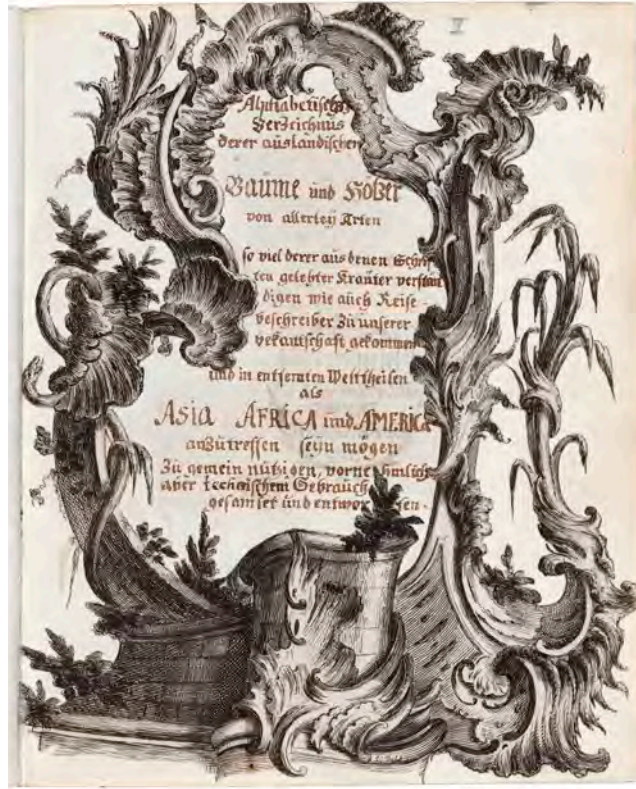 IV
Alphabetisches
Verzeichnus
derer ausländischen
Baüme und Hölzer
von allerleÿ Arten
so viel derer aus denen Schrif
ten gelehter Kraüter verstän
digen wie auch Reise-
beschreiber Zu unserer
bekantschaft gekommen
und in entfernten Welttheilen
als
ASia AFRICA und AMERICA
anZütreffen seÿn mögen
Zü gemein nützigen, vornehmlich
aber technischem Gebrauch
gesamlet und entworfen.